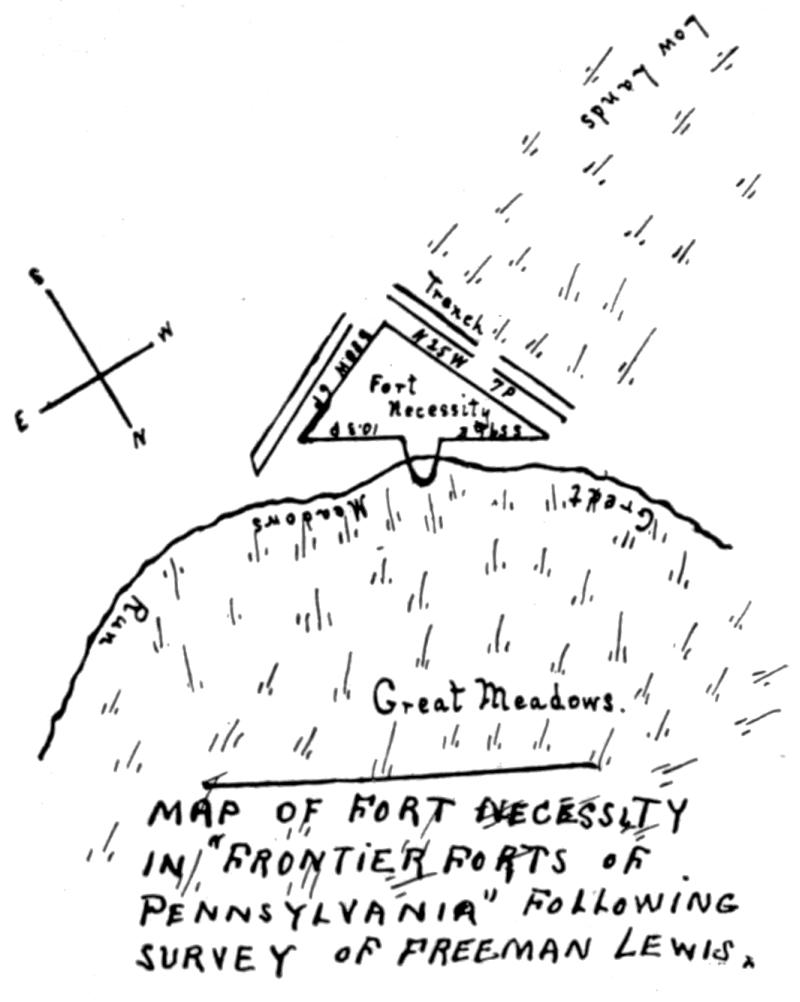 Low Lands
S
W
E
N
Trench
N 25 W
7P
6P
Fort
Necessity
10.3 P
Great
Meadows
Run
Great Meadows.
MAP OF FORT NECESSITY
IN "FRONTIER FORTS OF
PENNSYLVANIA" FOLLOWING
SURVEY OF FREEMAN LEWIS.